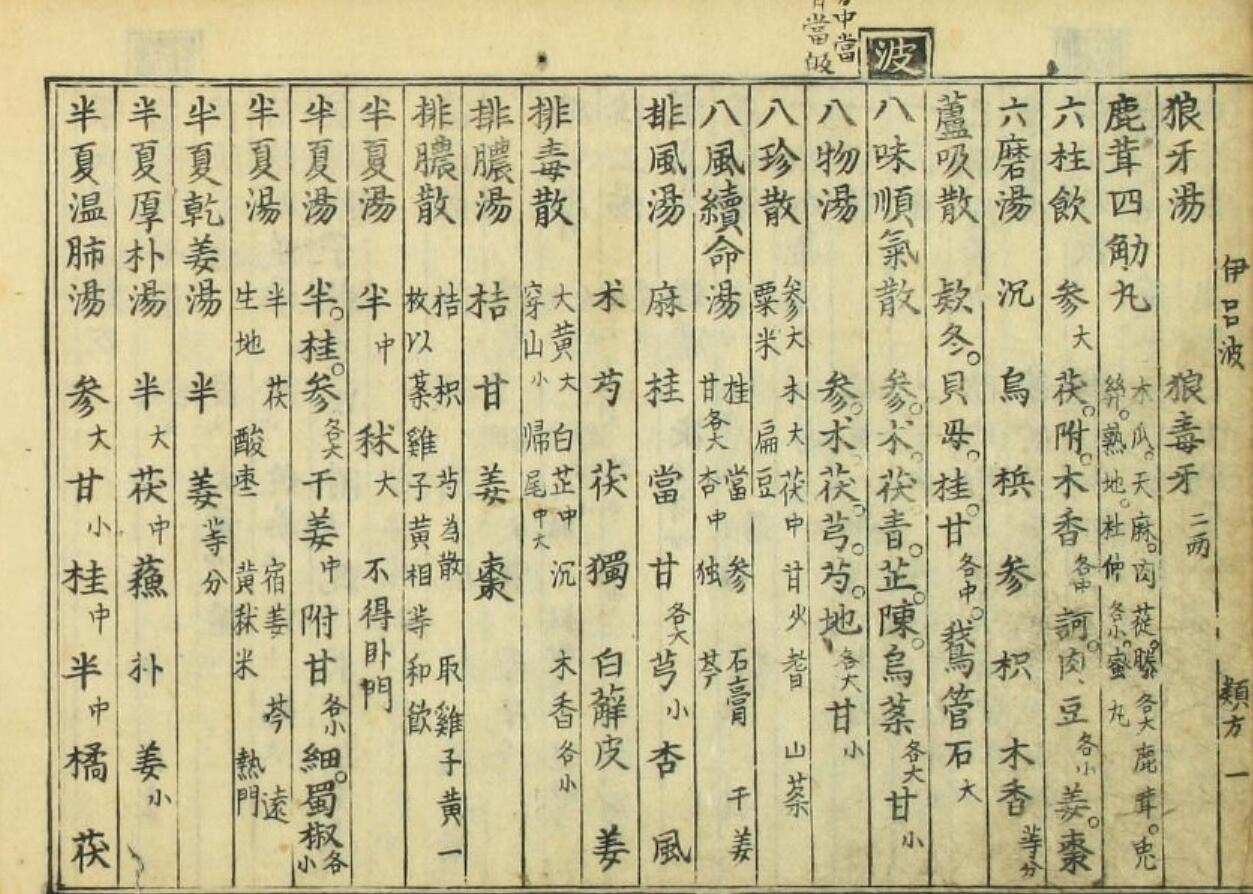 伊呂波 類方 一
狼牙湯 狼毒牙 二兩
鹿茸四觔丸 木瓜。天麻。肉蓯。膝各大鹿茸。兎
絲。熟地。杜仲各小。蜜丸
六柱飲 参大 茯。附。木香各中 訶。肉豆各小 姜。棗
六磨湯 沉 烏 梹 参 枳 木香等分
蘆吸散 欵冬。貝母。桂。甘各中。鵞管石大
八味順氣散 参。术。茯。青。芷。陳。烏薬各大 甘小
八物湯 参。术。茯。芎。芍。地各大 甘小
波
中當
當皈
八珍散 参大 木大 茯中 甘少 耆 山薬
粟米 扁豆
八風續命湯 桂 當 参 石膏 干姜
甘各大 杏中 独 芩
排風湯 麻 桂 當 甘各大 芎小 杏 風
术 芍 茯 獨 白蘚皮 姜
排毒散 大黄大 白芷中 沉 木香各小
穿山小 帰尾中大
排膿湯 桔 甘 姜 棗
排膿散 桔 枳 芍 為散 取雞子黄一
枚以薬雞子黄相等和飲
半夏湯 半中 秫大 不得卧門
半夏湯 半。桂。参各大 干姜中 附 甘各小 細。蜀椒各小
半夏湯 半 茯 宿姜 芩 遠
生地 酸棗 黄秫米 熱門
半夏乾姜湯 半 姜等分
半夏厚朴湯 半大 茯中 蘓 朴 姜小
半夏温肺湯 参大 甘小 桂中 半中 橘 茯